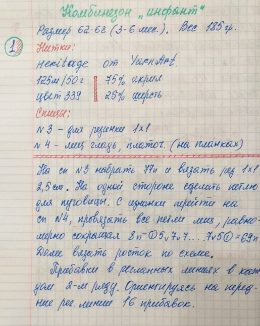 Комбинезон „инфант"
Размер 62-68 (3-6 мес.). Вес 185 гр.
1 Нитки:
heritage от YarnArt
125м/50г 75% акрил
цвет 339 25% шерсть
Спицы:
№3 - для резинки 1x1
№4 - лиц. гладь, платоч. (на планках)
На сп №3 набрать 77п и вязать рез 1x1
2,5см. На одной стороне сделать петлю
для пуговицы. С изнанки перейти на
сп №4, провязать все петли лиц, равно-
мерно сокращая
Далее вязать росток по схеме.
Прибавки в регланных линиях в каж-
дом 2-м ряду. Ориентируясь на перед-
ние рег. линии 16 прибавок.